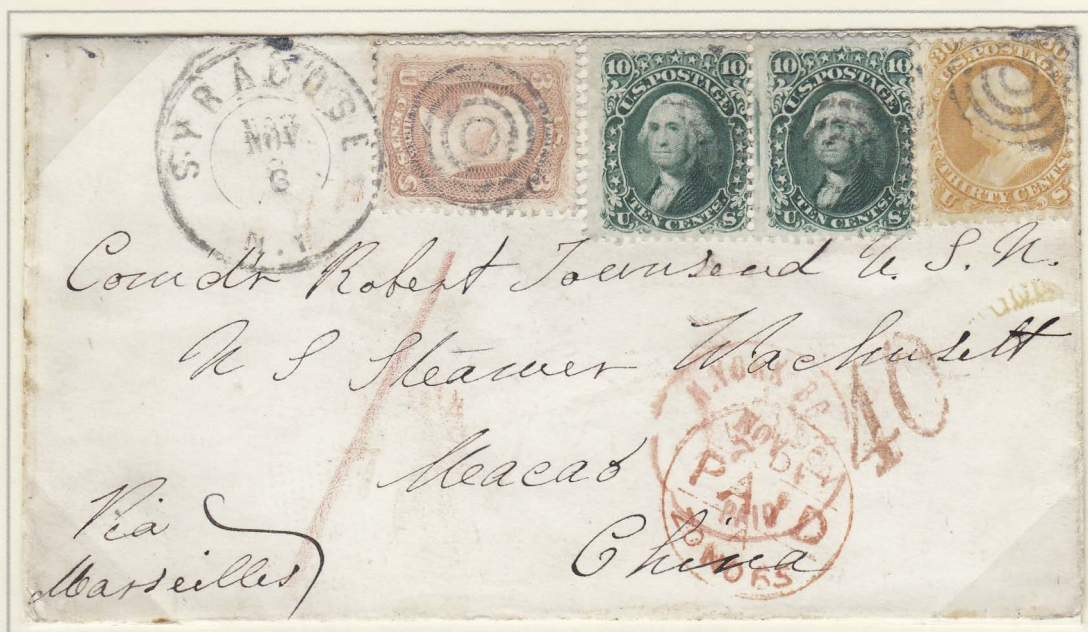 SYRACUSE
NOV
6
N.Y
3 3
U
CENTS
3 3
10 10
U.S. POSTAGE
TEN CENTS
U S
10 10
U.S. POSTAGE
TEN CENTS
U S
30 30
U.S. POSTAGE
THIRTY CENTS
U S
Comdr Robert Townsend U. S. N.
U S Steamer Wachusett
Macao
China
Via
Marseilles
40
NOV
PAID
PAID